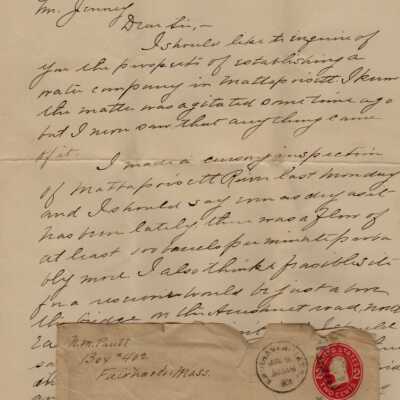 Mr. Jenney
Dear Sir,—
I should like to inquire of
you the prospects of establishing a
water company in Mattapoisett I know
the matter was agitated some time ago
but I never saw that any thing came
of it.
I made a cursory inspection
of Mattapoisett River last Monday
and I should say even as dry as it
has been lately there was a flow of
at least 100 barrels per minute proba
bly more I also think a feasible site
for a reservoir would be just above
the bridge on the Acushnet road, north
Box #402
Fairhaven Mass.
UNITED STATES
TWO CENTS